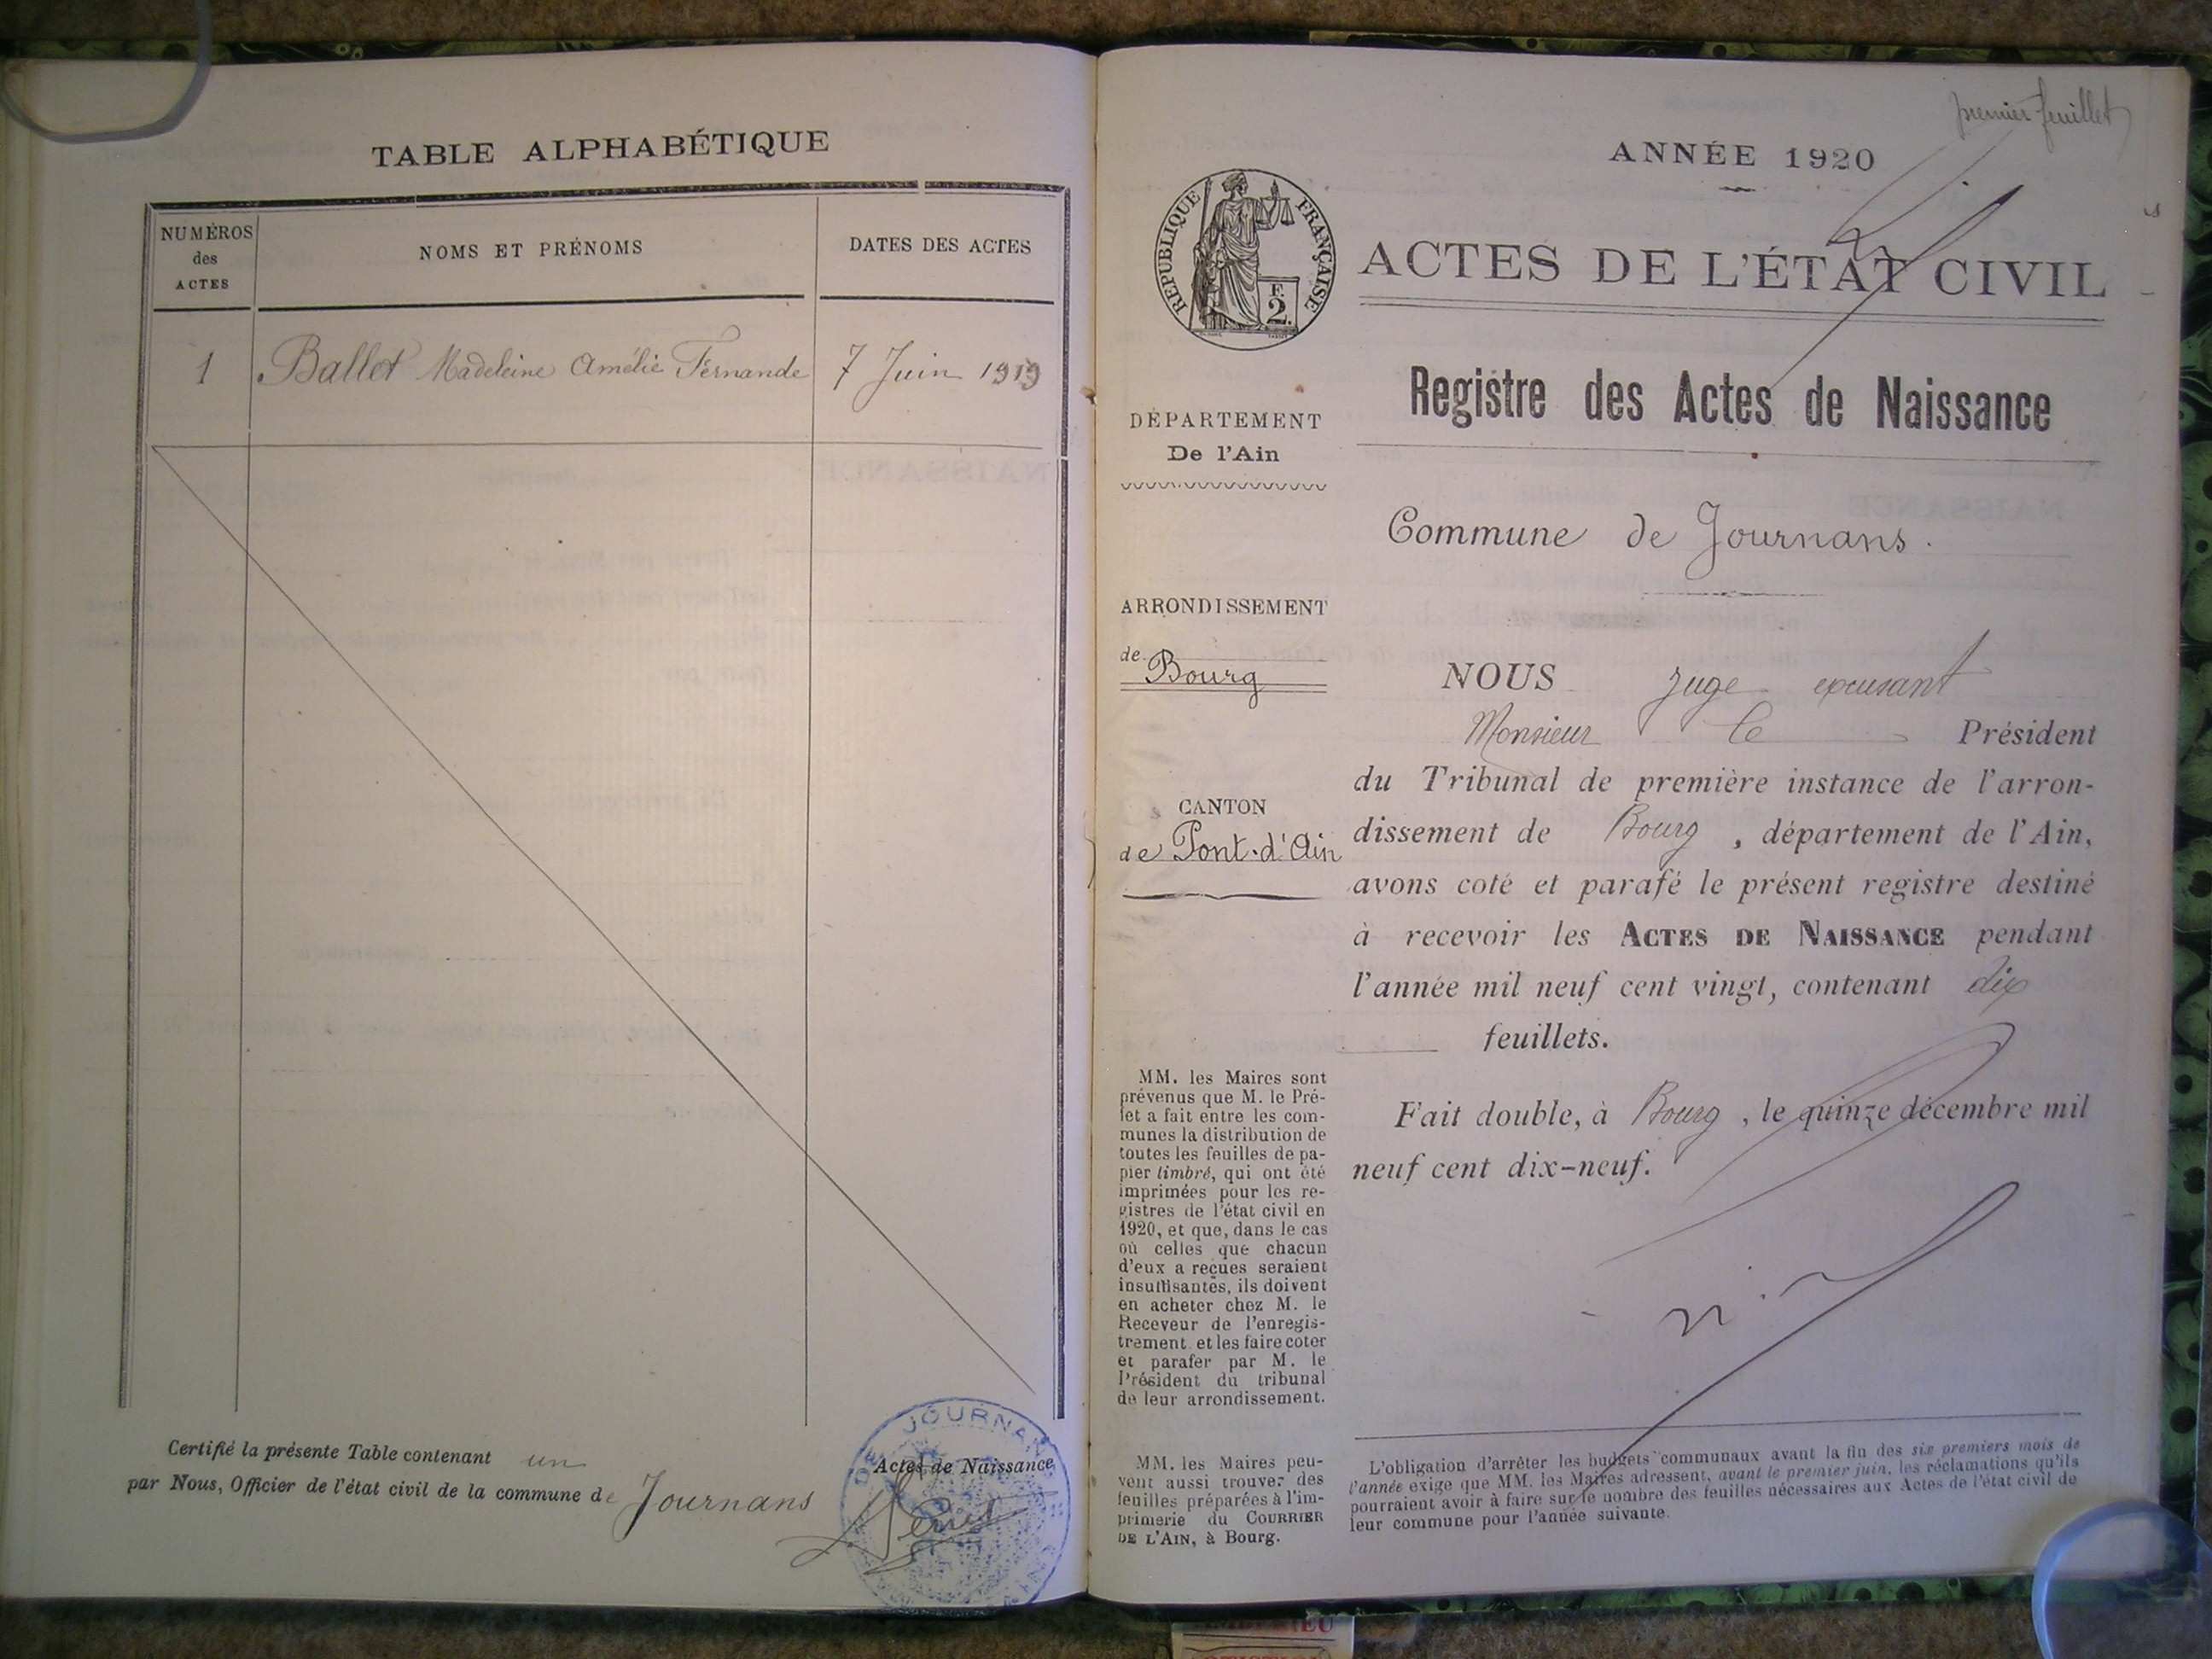 TABLE ALPHABÉTIQUE
NUMÉROS
des
ACTES
NOMS ET PRÉNOMS
DATES DES ACTES
1
Ballet Madeleine Amélie Fernande
7 Juin 1919
Certifié la présente Table contenant un
Actes de Naissance
par Nous, Officier de l'état civil de la commune de Journans
DE JOURNANS
premier feuillet
ANNÉE 1920
RÉPUBLIQUE FRANÇAISE
F.
2.
ACTES DE L'ÉTAT CIVIL
Registre des Actes de Naissance
DÉPARTEMENT
De l'Ain
Commune de Journans.
ARRONDISSEMENT
de Bourg
CANTON
de Pont-d'Ain
NOUS Juge excusant
Monsieur le Président
du Tribunal de première instance de l'arron-
dissement de Bourg, département de l'Ain,
avons coté et parafé le présent registre destiné
à recevoir les ACTES DE NAISSANCE pendant
l'année mil neuf cent vingt, contenant dix
feuillets.
Fait double, à Bourg, le quinze décembre mil
neuf cent dix-neuf.
MM. les Maires sont
prévenus que M. le Pré-
fet a fait entre les com-
munes la distribution de
toutes les feuilles de pa-
pier timbré, qui ont été
imprimées pour les re-
gistres de l'état civil en
1920, et que, dans le cas
où celles que chacun
d'eux a reçues seraient
insuffisantes, ils doivent
en acheter chez M. le
Receveur de l'enregis-
trement et les faire coter
et parafer par M. le
Président du tribunal
de leur arrondissement.
MM. les Maires peu-
vent aussi trouver des
feuilles préparées à l'im-
primerie du COURRIER
DE L'AIN, à Bourg.
L'obligation d'arrêter les budgets communaux avant la fin des six premiers mois de
l'année exige que MM. les Maires adressent, avant le premier juin, les réclamations qu'ils
pourraient avoir à faire sur le nombre des feuilles nécessaires aux Actes de l'état civil de
leur commune pour l'année suivante.